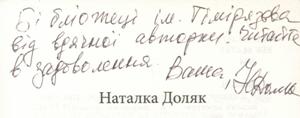 Бібліотеці ім. Тімірязєва
від вдячної авторки. Читайте
в задоволення. Ваша
Наталка Доляк